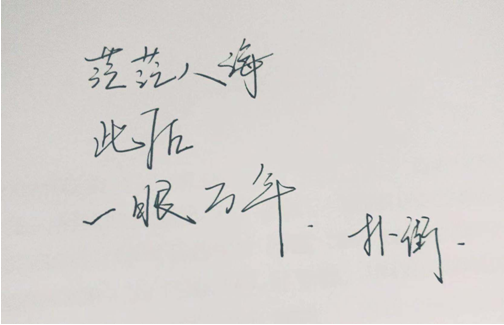 茫茫人海
此后
一眼万年.
扑街.